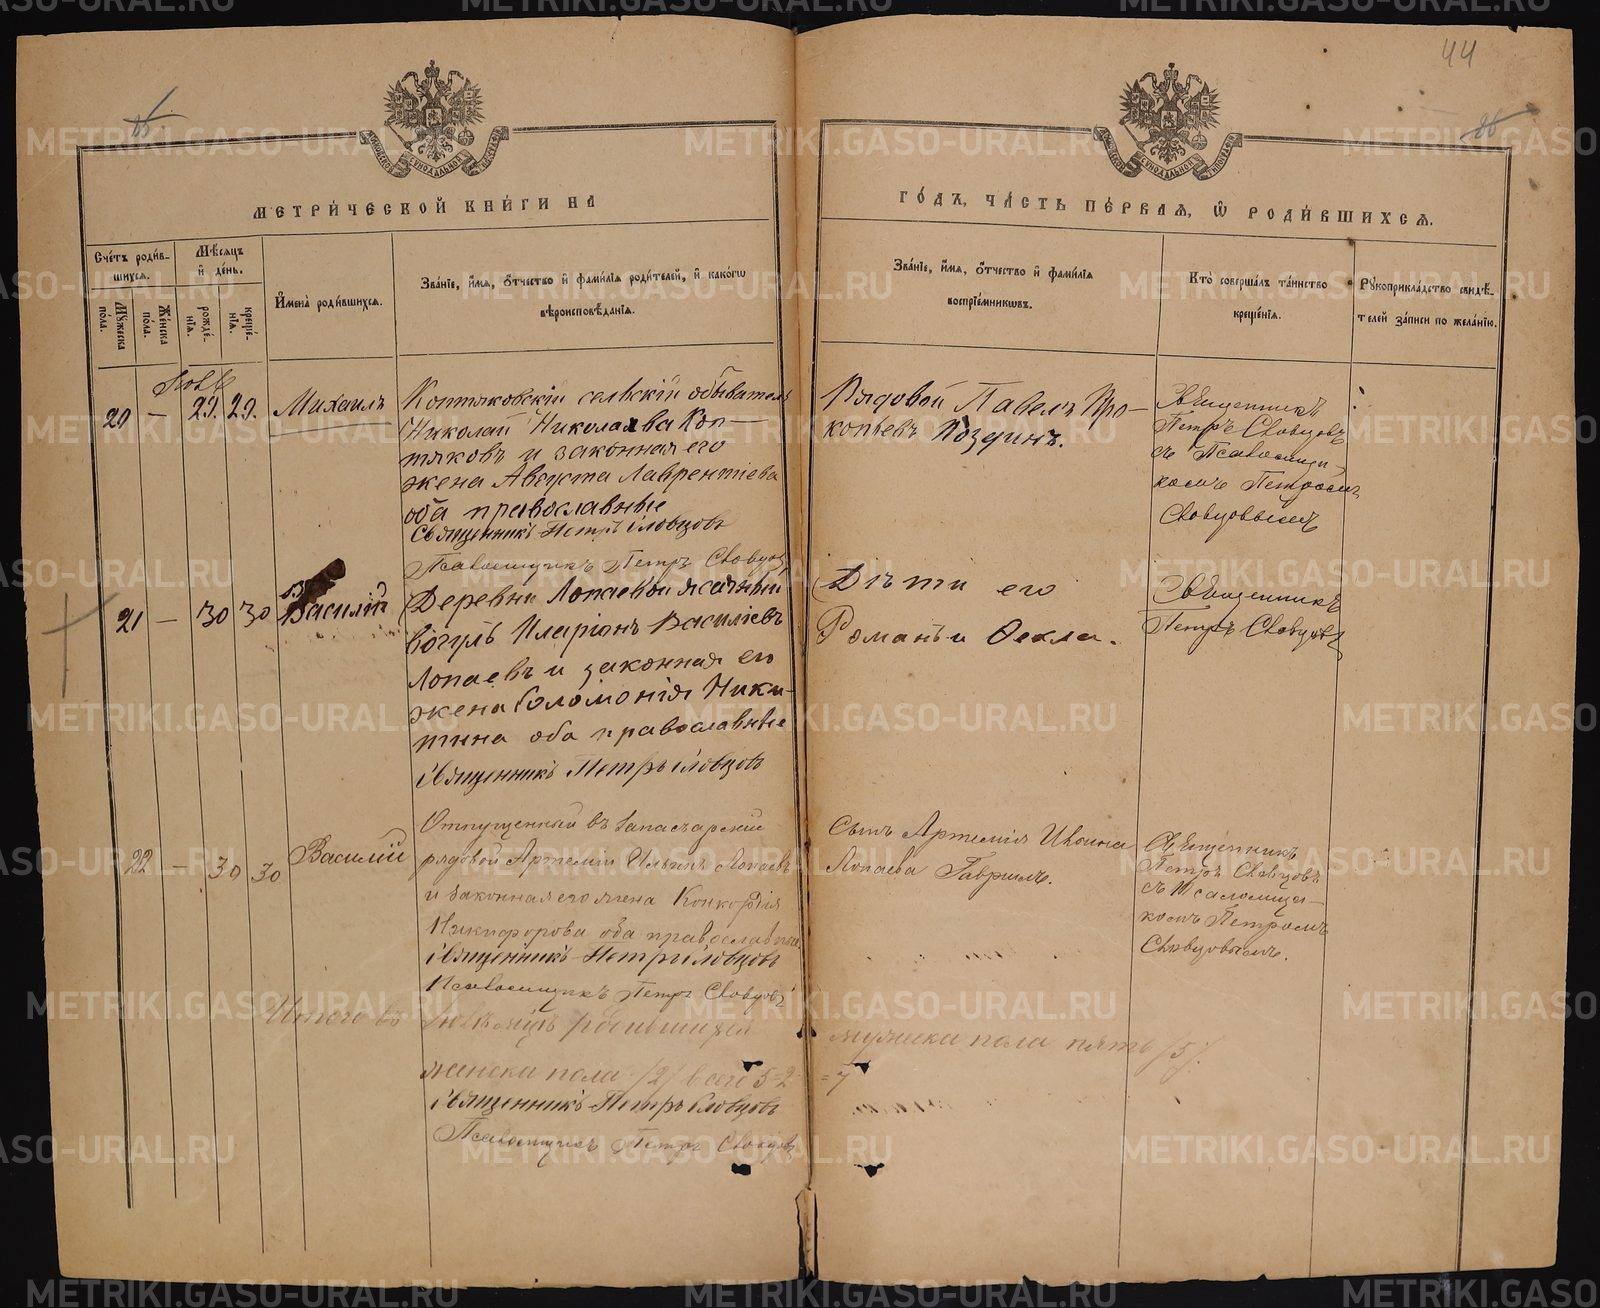 44
МЕТРИ́ЧЕСКОЙ КНИ́ГИ НА
ГО́ДЪ, ЧА́СТЬ ПЕ́РВАЯ, Ѡ РОДИ́ВШИХСЯ.
Сче́тъ роди́в-
шихся.
Мꙋжеска
по́ла.
Же́нска
по́ла.
Мѣ́сяцъ
и҆ де́нь.
рожде́-
нїя.
креще́-
нїя.
И҆мена̀ роди́вшихся.
Зва́нїе, и҆́мя, ѻ҆́тчество и҆ фами́лїя роди́телей, и҆ како́гѡ
вѣроисповѣ́данїя.
Зва́нїе, и҆́мя, ѻ҆́тчество и҆ фами́лїя
воспрїе́мникѡвъ.
Кто̀ соверша́лъ та́инство
креще́нїя.
Рꙋкоприкла́дство свидѣ́-
телей за́писи по жела́нїю.
20 — 29. 29. Михаилъ
Коптяковскій сельскій обыватель
Николай Николаева Коп-
тяковъ и законная его
жена Августа Лаврентіева
оба православные
Священникъ Петръ Словцовъ
Псаломщикъ Петръ Словцовъ
Рядовой Павелъ Про-
копьевъ
Священникъ
Петръ Словцовъ
съ Псаломщи-
комъ Петромъ
Словцовымъ
21 — 30 30 Василій
Деревни Лопаевой ясачный
вогулъ Иларіонъ Василіевъ
Лопаевъ и законная его
жена Соломонія Ники-
тина оба православные
Священникъ Петръ Словцовъ
Дѣти его
Романъ и Ѳекла.
Священникъ
Петръ Словцовъ
22 — 30 30 Василій
Отпущенный въ
рядовой Артемій Ильинъ Лопаевъ
и законная его жена Конкордія
Никифорова оба православные
Священникъ Петръ Словцовъ
Псаломщикъ Петръ Словцовъ
Сынъ Артемія
Лопаева Гавріилъ.
Священникъ
Петръ Словцовъ
съ Псаломщи-
комъ Петромъ
Словцовымъ.
Итого въ родившихся мужска пола пять /5/.
женска пола /2/ всего 5-2 = 7
Священникъ Петръ Словцовъ
Псаломщикъ Петръ Словцовъ
METRIKI.GASO-URAL.RU